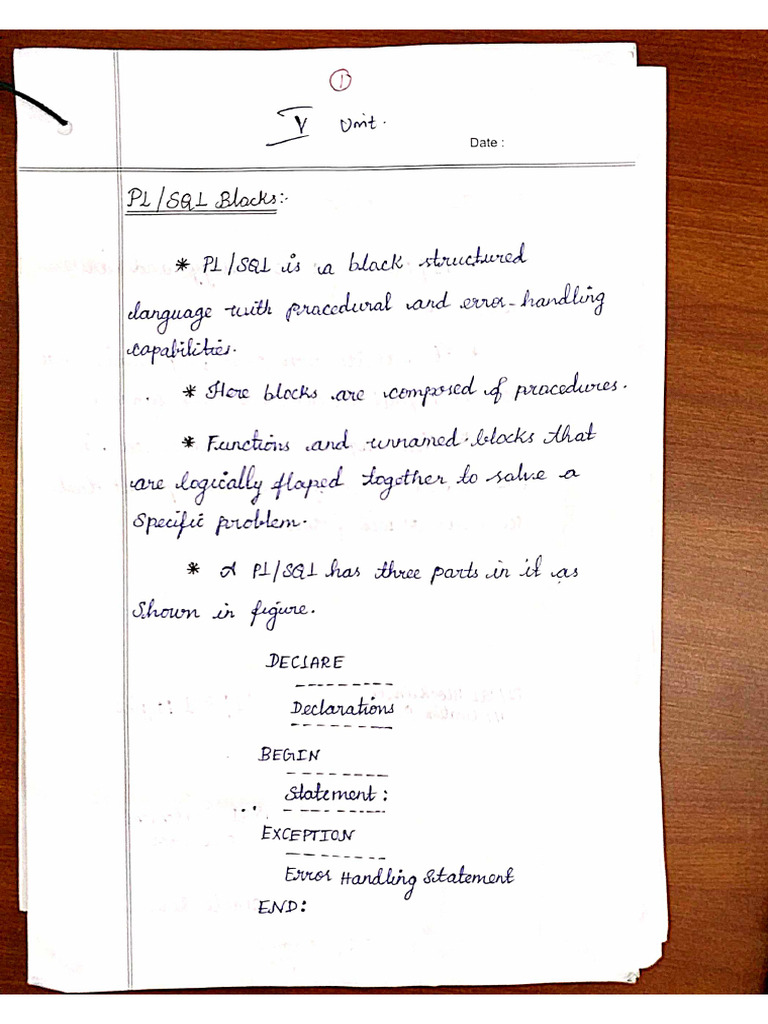 1
V Unit.
Date :
PL/SQL Blocks:-
* PL/SQL is a block structured
language with procedural and error-handling
capabilities.
* Here blocks are composed of procedures.
* Functions and unnamed blocks that
are logically flaped together to solve a
specific problem.
* A PL/SQL has three parts in it as
shown in figure.
DECLARE
Declarations
BEGIN
Statement:
EXCEPTION
Error Handling Statement
END: